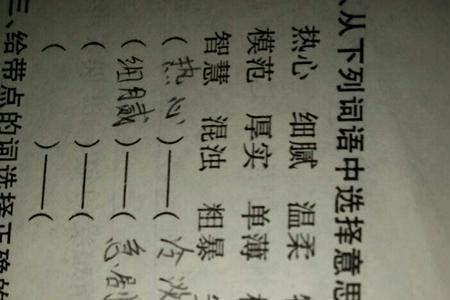 、从下列词语中选择意思
热心 细腻 温柔
模范 厚实 单薄
智慧 混浊 粗暴
(热心)——(冷淡
(细腻)——(急
( )——(
( )——(
三、给带点的词选择正确的